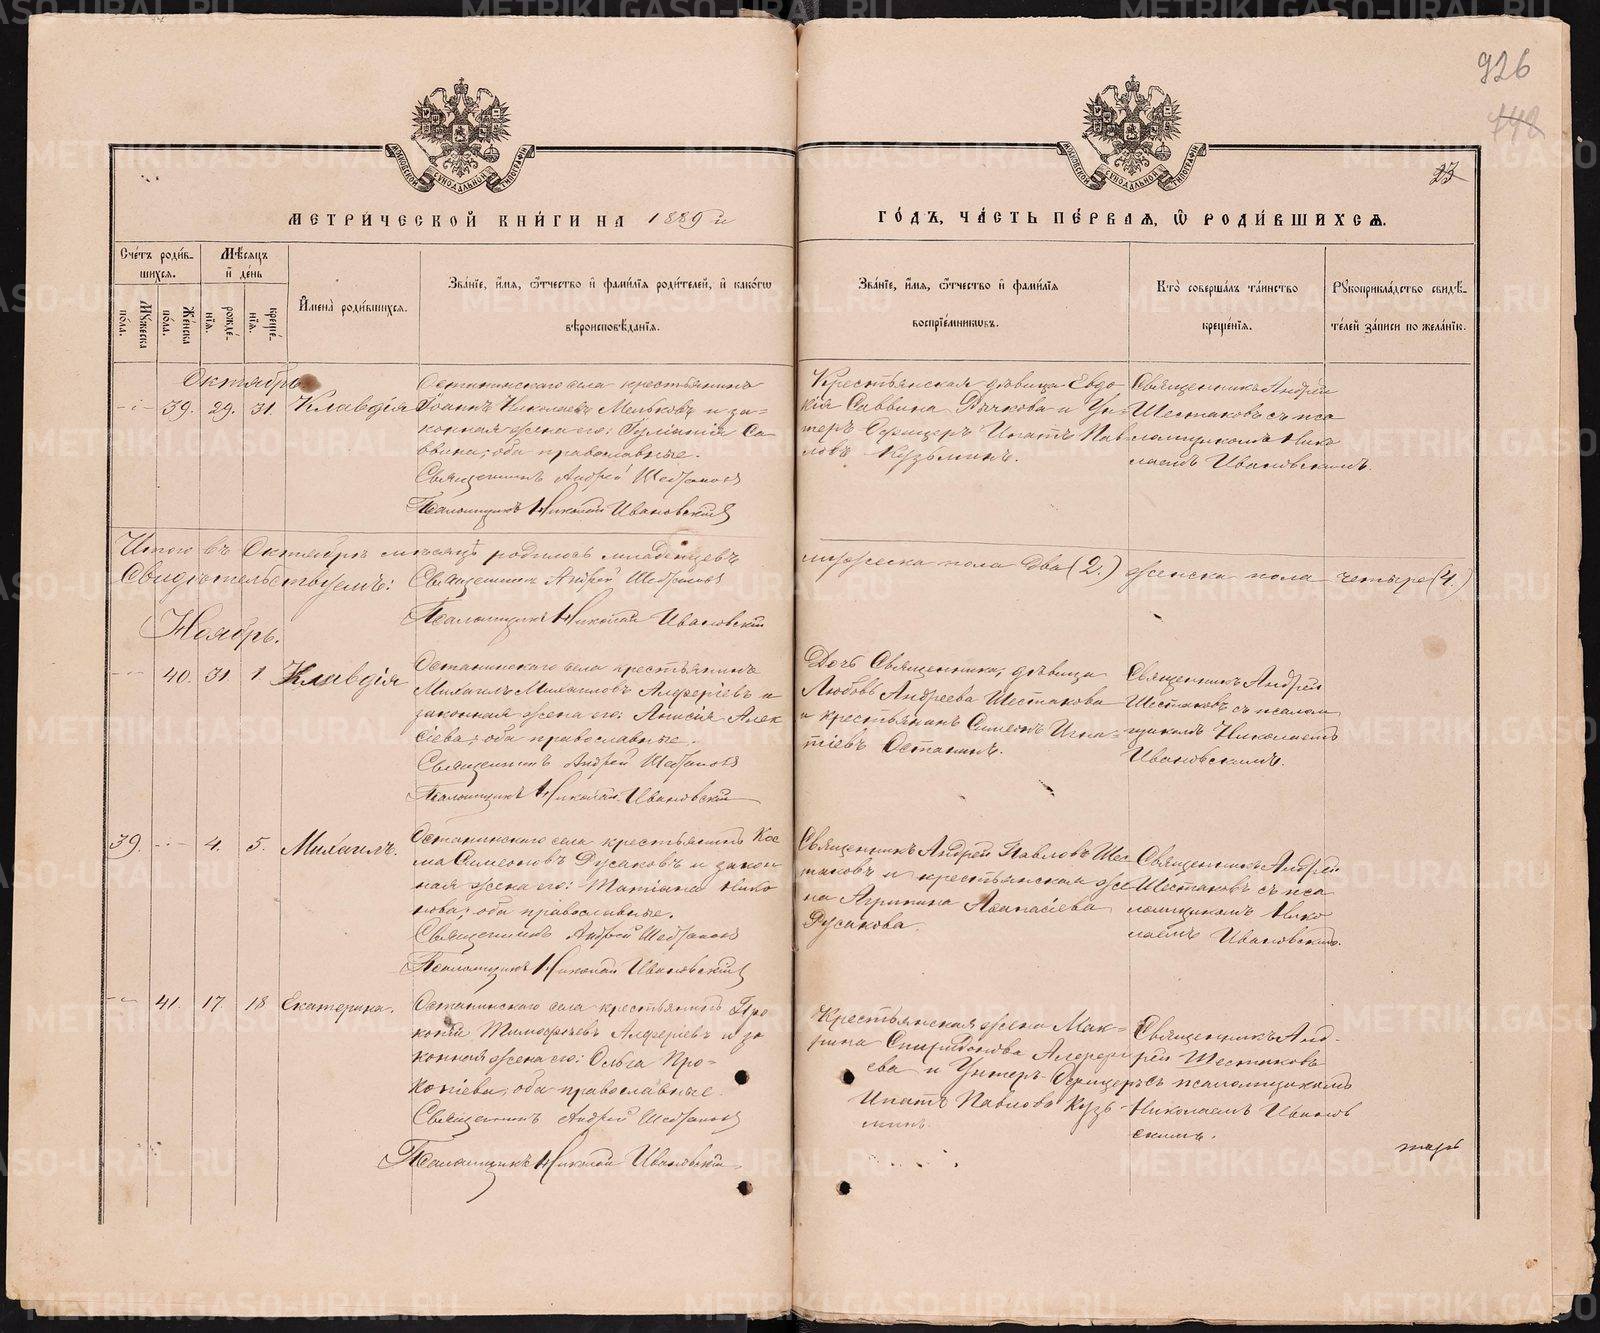 926
748
23
МОСКОВСКОЙ СѴНОДАЛЬНОЙ ТИПОГРАФІИ
МОСКОВСКОЙ СѴНОДАЛЬНОЙ ТИПОГРАФІИ
МЕТРИ́ЧЕСКОЙ КНИ́ГИ НА 1889й
ГО́ДЪ, ЧА́СТЬ ПЕ́РВАЯ, Ѽ РОДИ́ВШИХСѦ.
Сче́тъ роди́в-
шихся.
Мѣ́сяцъ
и҆ де́нь
Мꙋжеска
по́ла.
Же́нска
по́ла.
рожде́-
нїя.
креще́-
нїя.
И҆мена̀ роди́вшихся.
Зва́нїе, и҆́мя, ѻ҆́тчество и҆ фами́лїя роди́телей, и҆ како́гѡ
вѣроисповѣ́данїя.
Зва́нїе, и҆́мя, ѻ҆́тчество и҆ фами́лїя
воспрїе́мникѡвъ.
Кто̀ соверша́лъ та́инство
креще́нїя.
Рꙋкоприкла́дство свидѣ́-
телей за́писи по жела́нїю.
Октябрь
39. 29. 31. Клавдія
Останинскаго села крестьянинъ
Іоаннъ Николаевъ Мельковъ и за-
конная жена его: Іуліанія Са-
ввина; оба православные.
Священникъ Андрей Шестаковъ
Псаломщикъ Николай Ивановскій
Крестьянская дѣвица Евдо-
кія Саввина Рычкова и Ун-
теръ-Офицеръ Ипатъ Пав-
ловъ Кузьминъ.
Священникъ Андрей
Шестаковъ съ пса
ломщикомъ Нико
лаемъ Ивановскимъ.
Итого въ Октябрѣ мѣсяцѣ родилось младенцевъ мужеска пола два (2.) женска пола четыре (4.)
Свидѣтельствуемъ: Священникъ Андрей Шестаковъ
Псаломщикъ Николай Ивановскій
Ноябрь.
40. 31. 1 Клавдія
Останинскаго села крестьянинъ
Михаилъ Михаиловъ Алферіевъ и
законная жена его: Анисія Алек
сіева; оба православные.
Священникъ Андрей Шестаковъ
Псаломщикъ Николай Ивановскій
Дочь Священника, дѣвица
Любовь Андреева Шестакова
и крестьянинъ Симеонъ Игна-
тіевъ Останинъ.
Священникъ Андрей
Шестаковъ съ псалом
щикомъ Николаемъ
Ивановскимъ.
39. 4. 5. Михаилъ.
Останинскаго села крестьянинъ Кос
ма Симеоновъ Русаковъ и закон
ная жена его: Татіана Нико
нова; оба православные.
Священникъ Андрей Шестаковъ
Псаломщикъ Николай Ивановскій
Священникъ Андрей Павловъ Шес
таковъ и крестьянская же
на Агрипина Аѳанасіева
Русакова.
Священникъ Андрей
Шестаковъ съ пса
ломщикомъ Нико
лаемъ Ивановскимъ.
41. 17. 18 Екатерина.
Останинскаго села крестьянинъ Про
копій Тимофеевъ Алферіевъ и за
конная жена его: Ольга Про-
копіева, оба православные.
Священникъ Андрей Шестаковъ
Псаломщикъ Николай Ивановскій
Крестьянская жена Мак-
рина Спиридонова Алфері
ева и Унтеръ-Офицеръ
Ипатъ Павловъ Кузь-
минъ.
Священникъ Анд-
рей Шестаковъ
съ псаломщикомъ
Николаемъ Иванов
скимъ.